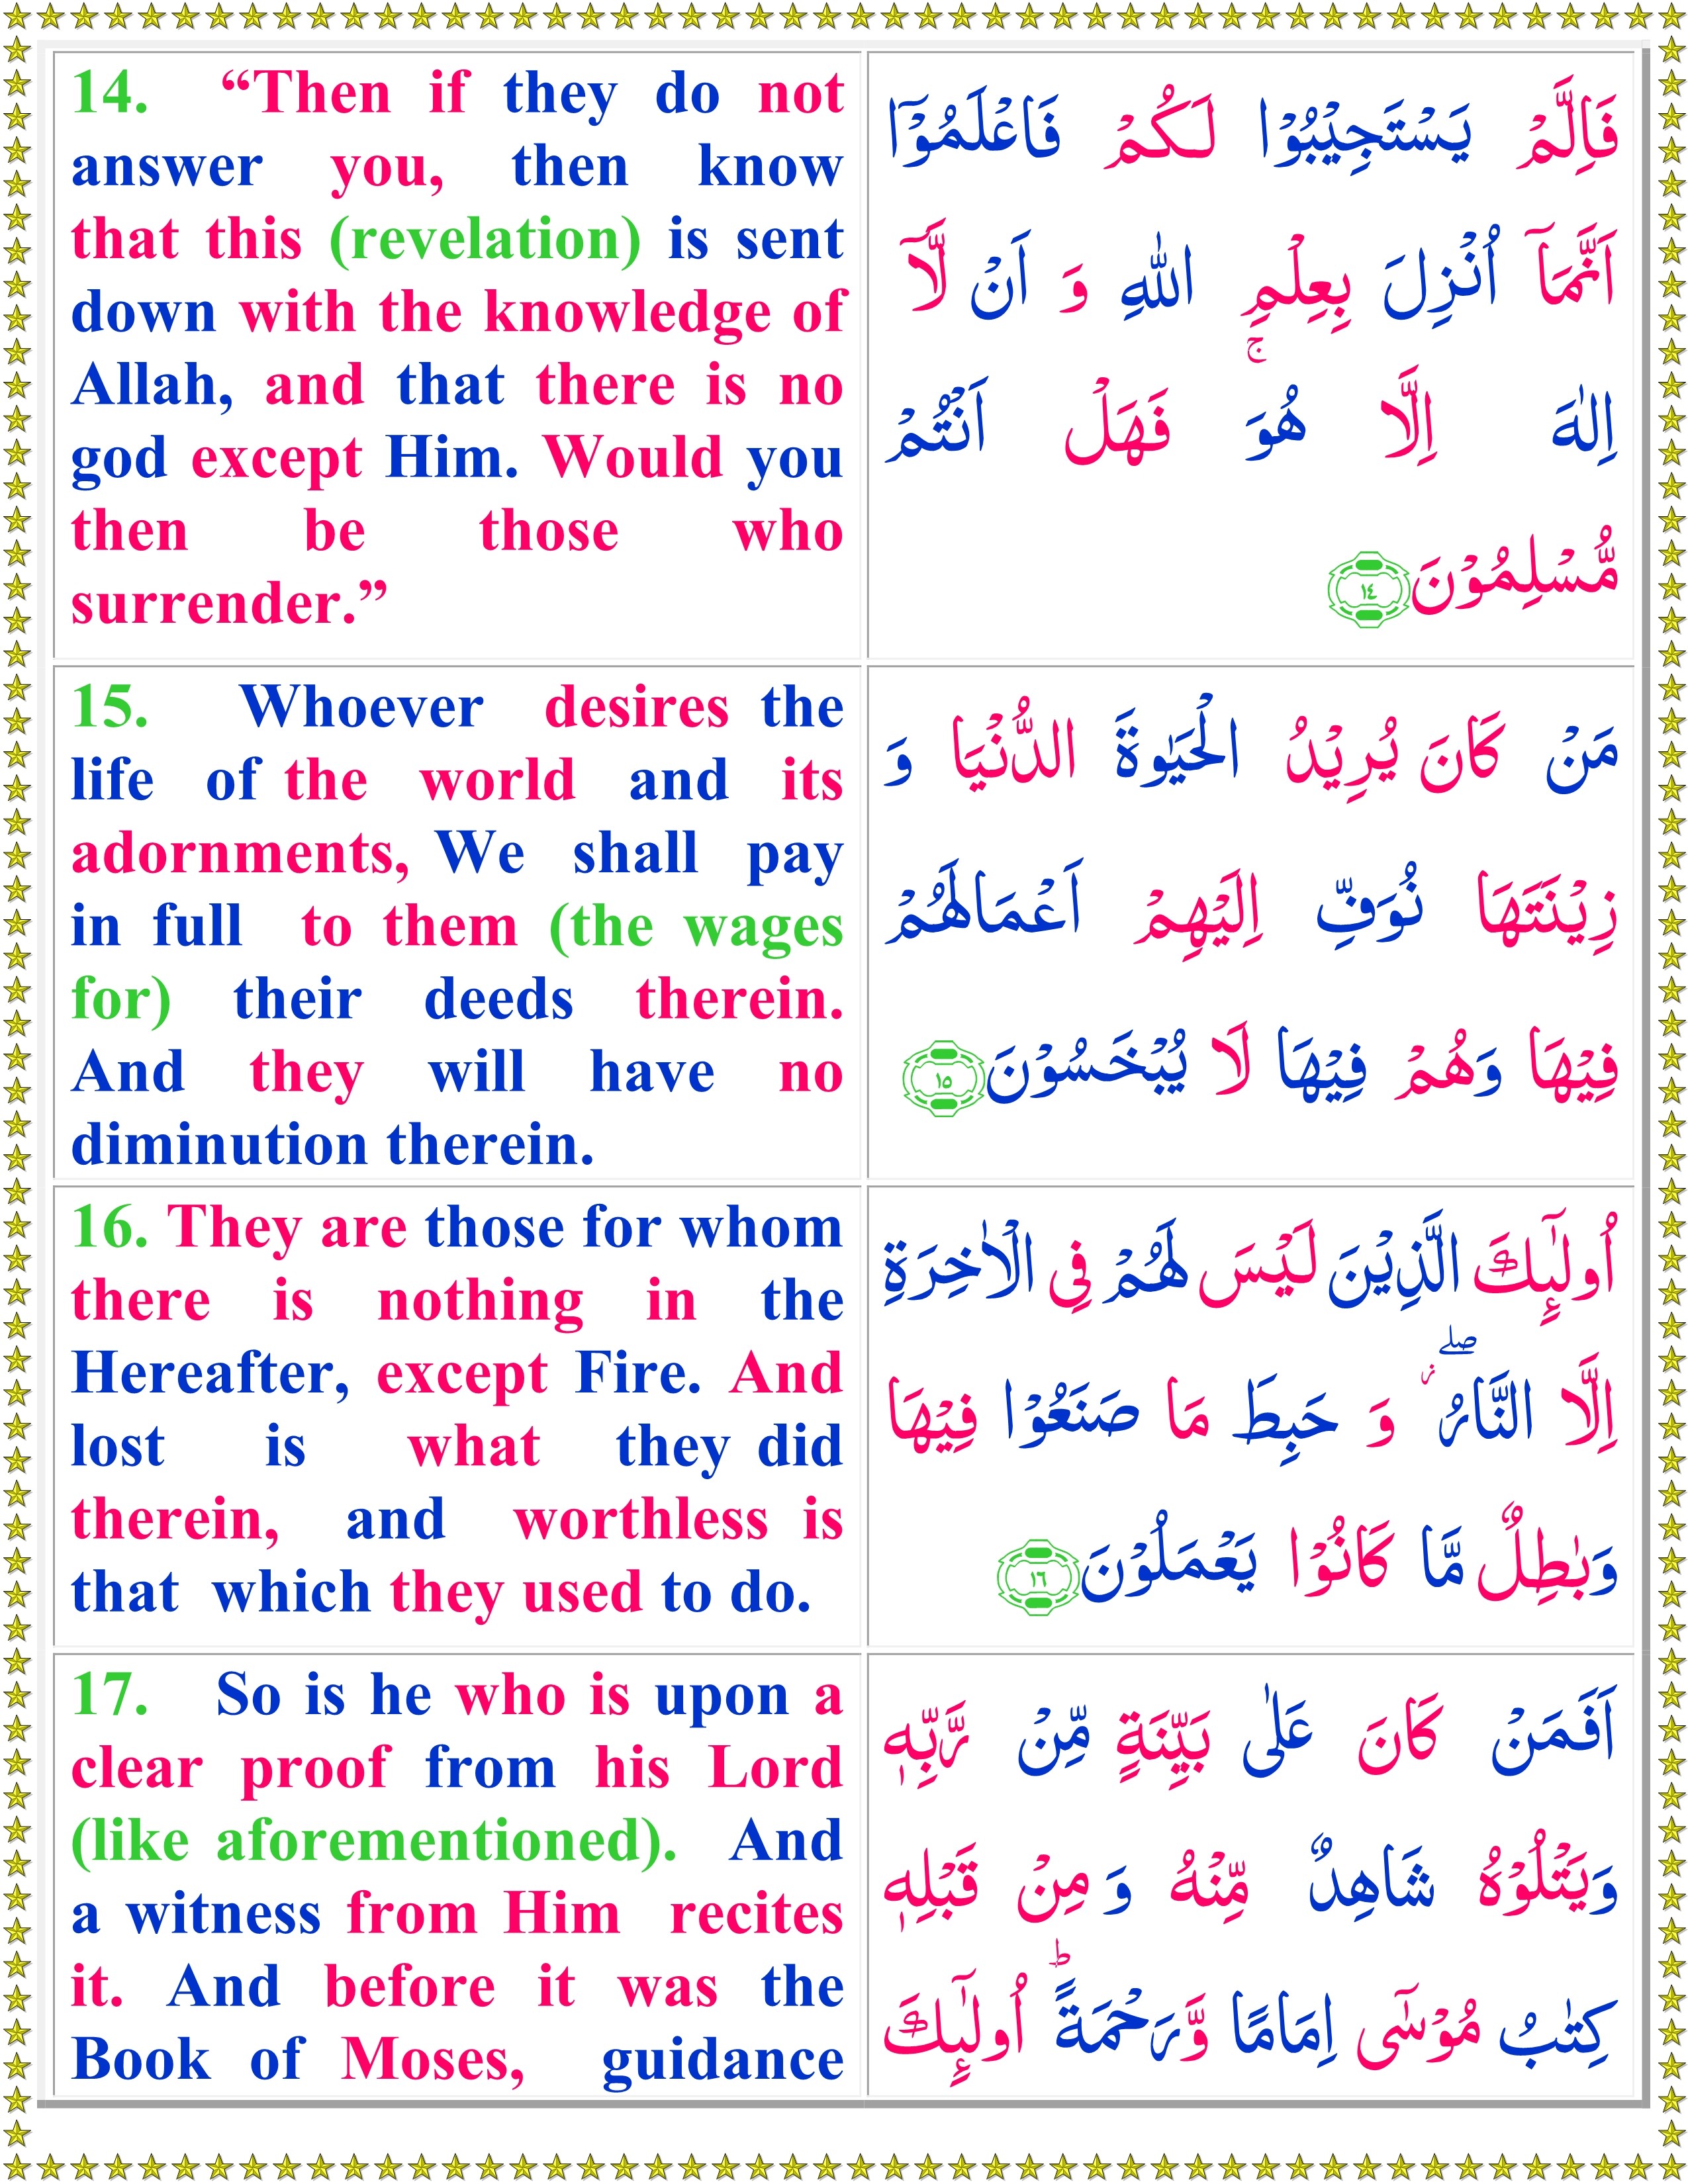 14. “Then if they do not
answer you, then know
that this (revelation) is sent
down with the knowledge of
Allah, and that there is no
god except Him. Would you
then be those who
surrender.”
فَاِلَّمْ يَسْتَجِيْبُوْا لَكُمْ فَاعْلَمُوْۤا
اَنَّمَاۤ اُنْزِلَ بِعِلْمِ اللّٰهِ وَ اَنْ لَّاۤ
اِلٰهَ اِلَّا هُوَ ۚ فَهَلْ اَنْتُمْ
مُّسْلِمُوْنَ ١٤
15. Whoever desires the
life of the world and its
adornments, We shall pay
in full to them (the wages
for) their deeds therein.
And they will have no
diminution therein.
مَنْ كَانَ يُرِيْدُ الْحَيٰوةَ الدُّنْيَا وَ
زِيْنَتَهَا نُوَفِّ اِلَيْهِمْ اَعْمَالَهُمْ
فِيْهَا وَهُمْ فِيْهَا لَا يُبْخَسُوْنَ ١٥
16. They are those for whom
there is nothing in the
Hereafter, except Fire. And
lost is what they did
therein, and worthless is
that which they used to do.
اُولٰٓئِكَ الَّذِيْنَ لَيْسَ لَهُمْ فِى الْاٰخِرَةِ
اِلَّا النَّارُ ۖ وَ حَبِطَ مَا صَنَعُوْا فِيْهَا
وَبٰطِلٌ مَّا كَانُوْا يَعْمَلُوْنَ ١٦
17. So is he who is upon a
clear proof from his Lord
(like aforementioned). And
a witness from Him recites
it. And before it was the
Book of Moses, guidance
اَفَمَنْ كَانَ عَلٰى بَيِّنَةٍ مِّنْ رَّبِّهٖ
وَيَتْلُوْهُ شَاهِدٌ مِّنْهُ وَ مِنْ قَبْلِهٖ
كِتٰبُ مُوْسٰٓى اِمَامًا وَّرَحْمَةً ؕ اُولٰٓئِكَ